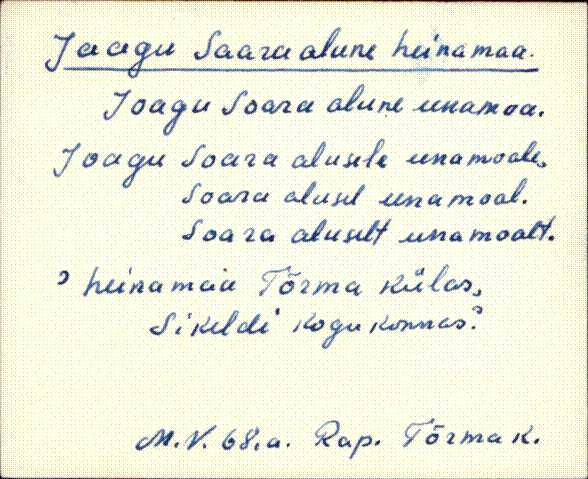 Jaagu Saara alune heinamaa.
Joagu Soara alune einamoa.
Joagu Soara alusele einamoale,
Soara alusel einamoal.
Soara aluselt einamoalt.
? heinamaa Tõrma külas,
Sikeldi kogukonnas?
M.V. 68.a. Rap. Tõrma k.